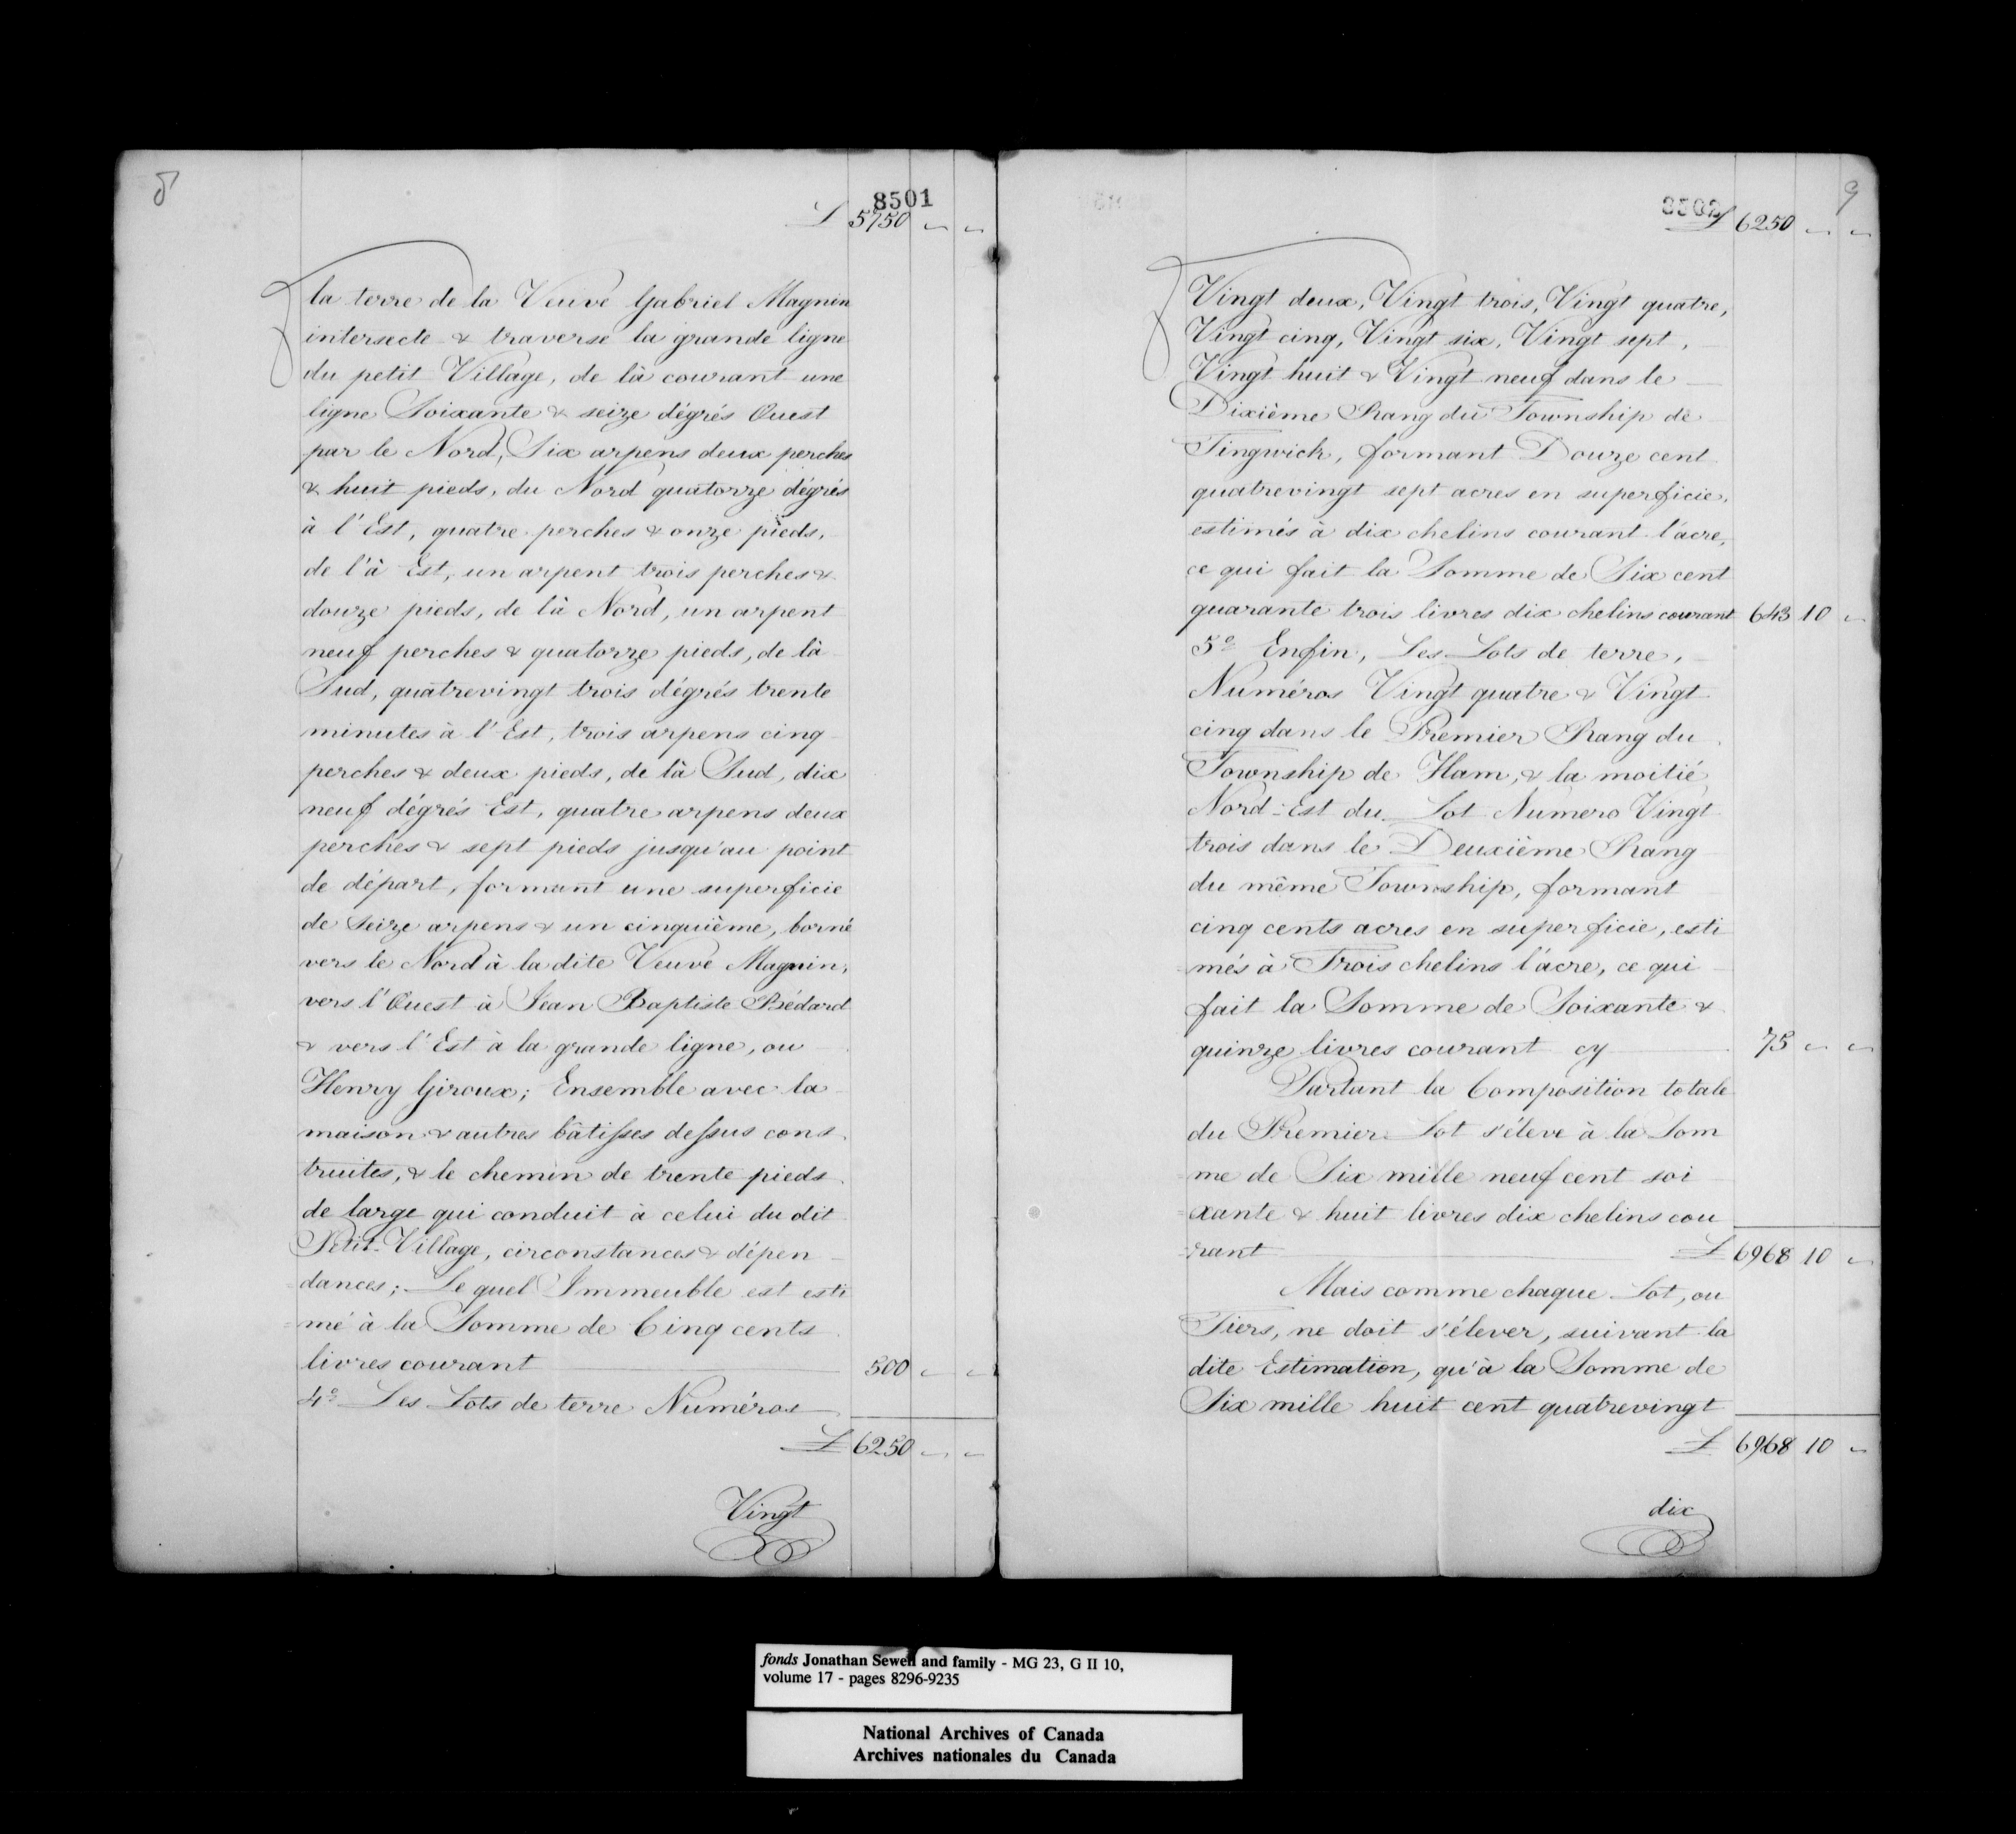 8
8501
£ 5750 " "
la terre de la Veuve Gabriel Magnin
intersecte & traverse la grande ligne
du petit Village, de là courant une
ligne Soixante & seize dégrés Ouest
par le Nord, Six arpens deux perches
& huit pieds, du Nord quatorze dégrés
à l'Est, quatre perches & onze pieds,
de l'à Est, un arpent trois perches &
douze pieds, de là Nord, un arpent
neuf perches & quatorze pieds, de là
Sud, quatrevingt trois dégrés trente
minutes à l'Est, trois arpens cinq
perches & deux pieds, de là Sud, dix
neuf dégrés Est, quatre arpens deux
perches & sept pieds jusqu'au point
de départ, formant une superficie
de Seize arpens & un cinquième, borné
vers le Nord à la dite Veuve Magnin,
vers l'Ouest à Jean Baptiste Bédard
& vers l'Est à la grande ligne, ou
Henry Giroux; Ensemble avec la
maison & autres bâtisses dessus cons
truites, & le chemin de trente pieds
de large qui conduit à celui du dit
Petit-Village, circonstances & dépen
=dances; Le quel Immeuble est esti
=mé à la Somme de Cinq cents
livres courant 500 " "
4º Les Lots de terre Numéros
£ 6250 " "
Vingt
9
8502
£ 6250 " "
Vingt deux, Vingt trois, Vingt quatre,
Vingt cinq, Vingt six, Vingt sept,
Vingt huit & Vingt neuf dans le
Dixième Rang du Township de
Tingwick, formant Douze cent
quatrevingt sept acres en superficie,
estimés à dix chelins courant l'acre,
ce qui fait la Somme de Six cent
quarante trois livres dix chelins courant 643 10 "
5º Enfin, Les Lots de terre,
Numéros Vingt quatre & Vingt
cinq dans le Premier Rang du
Township de Ham, & la moitié
Nord-Est du Lot Numero Vingt
trois dans le Deuxième Rang
du même Township, formant
cinq cents acres en superficie, esti
=més à Trois chelins l'acre, ce qui
fait la Somme de Soixante &
quinze livres courant cy 75 " "
Partant la Composition totale
du Premier Lot s'éleve à la Som
=me de Six mille neuf cent soi
=xante & huit livres dix chelins cou
=rant £ 6968 10 "
Mais comme chaque Lot, ou
Tiers, ne doit s'élever, suivant la
dite Estimation, qu'à la Somme de
Six mille huit cent quatrevingt
£ 6968 10 "
dix
fonds Jonathan Sewell and family - MG 23, G II 10,
volume 17 - pages 8296-9235
National Archives of Canada
Archives nationales du Canada